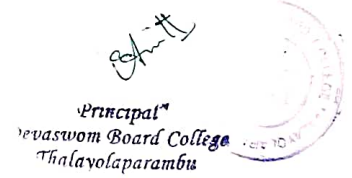 Principal
Devaswom Board College
Thalayolaparambu